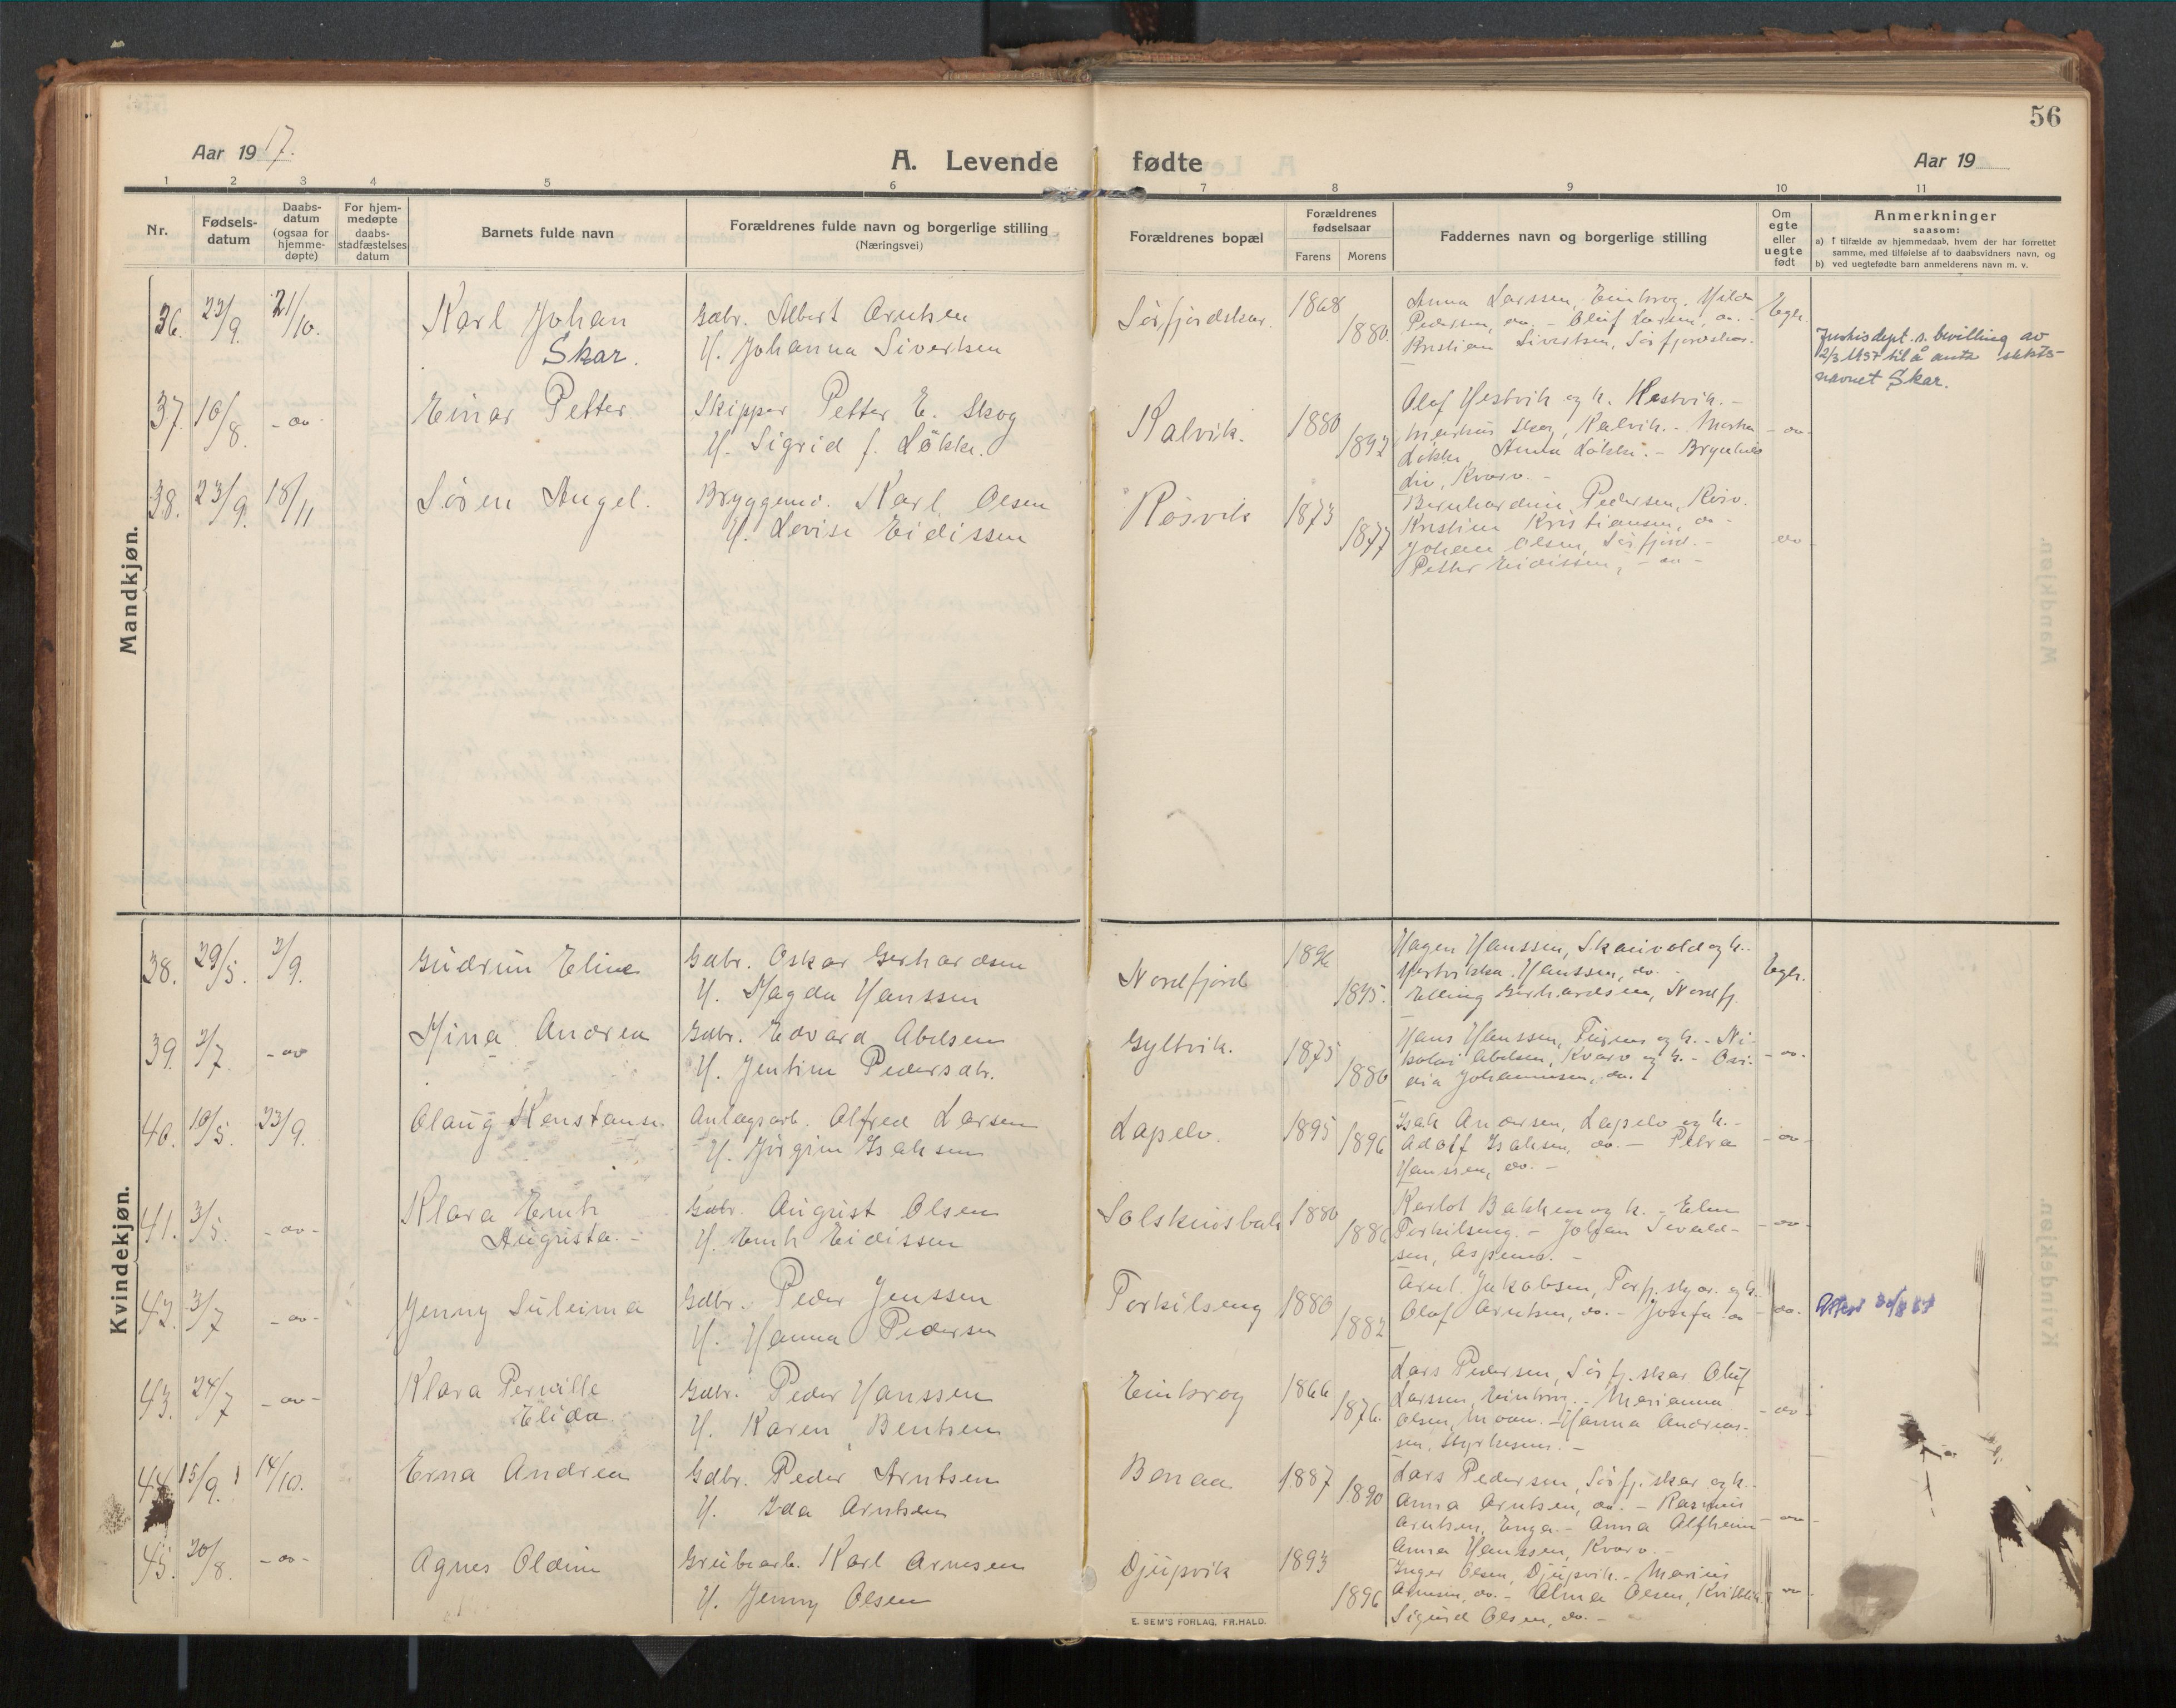 56
Aar 1917.
A. Levende fødte
Aar 19
1 2 3 4 5 6 7 8 9 10 11
Nr.
Fødsels-
datum
Daabs-
datum
(ogsaa for
hjemme-
døpte)
For hjem-
medøpte
daabs-
stadfæstelses
datum
Barnets fulde navn
Forældrenes fulde navn og borgerlige stilling
(Næringsvei)
Forældrenes bopæl
Forældrenes
fødselsaar
Farens Morens
Faddernes navn og borgerlige stilling
Om
egte
eller
uegte
født
Anmerkninger
saasom:
a) I tilfælde av hjemmedaab, hvem der har forrettet
samme, med tilføielse af to daabsvidners navn, og
b) ved uegtefødte barn anmelderens navn m. v.
Mandkjøn.
36. 23/9. 21/10.
Karl Johan
Skar.
Gdbr. Albert Arntsen
H. Johanna Sivertsen
Sørfjordskar.
1868
1880.
Anna Larssen, Einkrog. Hilda
Pedersen, do. - Oluf Larsen, do. -
Kristian Sivertsen, Sørfjordskar.
Egte.
Justisdept.s. bevilling av
2/3 1937 til å anta slekts-
navnet Skar.
37. 16/8. - do -
Einar Petter
Skipper Petter E. Skog
H. Sigrid f. Løkke.
Kalvik.
1880
1892
Olaf Hestvik og h. Hestvik. -
Skog, Kalvik. -
Løkke, Anna Løkke. -
do, Kvarv. -
- do -
38. 23/9. 18/11
Søren Angel.
Bryggearb. Karl Olsen
H. Lovise Eidissen
Røsvik
1873
1877
Bernhardine Pedersen, Kvarv.
Kristine Kristiansen, do -
Johan Olsen, Sørfjord. -
Petter Eidissen, - do -
do -
Kvindekjøn.
38. 29/5. 2/9.
Gudrun Eline
Gdbr. Oskar Gerhardsen
H. Magda Hanssen
Nordfjord
1896
1895.
Hagen Hanssen, og h. -
Hanssen, do. -
Elling Gerhardsen, Nordfj.
Egte.
39. 2/7. - do
Mina Andrea
Gdbr. Edvard Abelsen
H. Jentine Pedersdtr.
Gyltvik.
1875
1880
Hans Hanssen, og h. - Ni-
kolai Abelsen, Kvarv og h. - Ovi-
dia Johannesen, do.
- do -
40. 10/5. 23/9.
Olaug Konstanse
Anlægsarb. Alfred Larsen
H. Jørgine Isaksen
Lapelv.
1895
1896
Isak Andersen, Lapelv og h. -
Adolf Isaksen, do. - Petra
Hanssen, do. -
- do -
41. 3/5. - do -
Klara Emh
Augusta. -
Gdbr. August Olsen
H. Emh Eidissen
Solskinsbak
1880
1886
Karlot Bakken og h. - Elen
Torkilseng. - Johan Sevald-
sen, Aspenes. -
- do -
42. 3/7 - do -
Jenny Suleima
Gdbr. Peder Jenssen
H. Hanna Pedersen
Torkilseng
1880
1882
Arnt Jakobsen, og h. -
Olaf Arntsen, do. - Josefa do
- do -
43. 24/7 - do -
Klara Pernille
Elida
Gdbr. Peder Hanssen
H. Karen Bentsen
Einkrog
1866
1876.
Lars Pedersen, Sørfj.skar Oluf
Larssen, Einkrog. - Marianna
Olsen, Moan. - Hanna Andreas-
sen, Styrkesnes. -
- do -
44. 15/9. 14/10.
Erna Andrea
Gdbr. Peder Arntsen
H. Ida Arntsen
Bonaa
1887
1890
Lars Pedersen, Sørfj.skar og h. -
Anna Arntsen, do. - Rasmus
Arntsen, Enga. - Anna Alfheim
- do -
45. 20/8. - do -
Agnes Oldine
Grubearb. Karl Arnesen
H. Jenny Olsen
Djupvik
1893
1896
Anna Hanssen, Kvarv. -
Inger Olsen, Djupvik. - Marius
Arnesen, do. - Alma Olsen,
Sigurd Olsen, do. -
- do -
E. SEM'S FORLAG, FR.HALD.